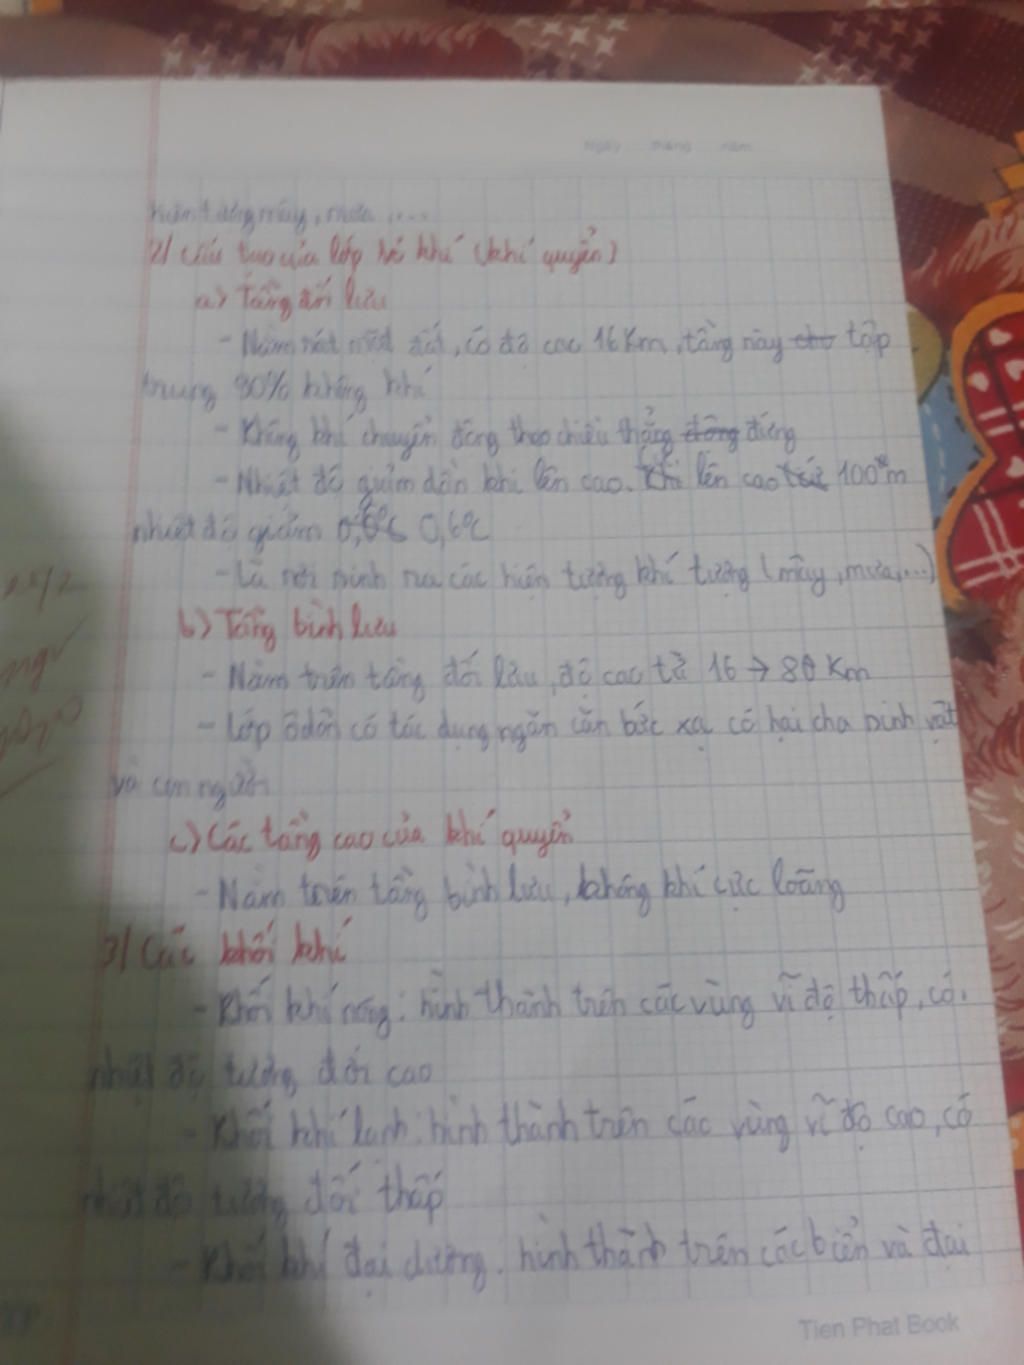 Ngày tháng năm
tượng mây, mưa ....
2/ Cấu tạo của lớp vỏ khí (khí quyển)
a) Tầng đối lưu
- Nằm sát mặt đất, có độ cao 16 Km, tầng này cho tập
trung 90% không khí
- Không khí chuyển động theo chiều thẳng đông đứng
- Nhiệt độ giảm dần khi lên cao. Khi lên cao 100 m
nhiệt độ giảm 0,6°C 0,6°C
- Là nơi sinh ra các hiện tượng khí tượng (mây, mưa,...)
b) Tầng bình lưu
- Nằm trên tầng đối lưu, độ cao từ 16 → 80 Km
- Lớp ôdôn có tác dụng ngăn cản bức xạ có hại cho sinh vật
và con người
c) Các tầng cao của khí quyển
- Nằm trên tầng bình lưu, không khí cực loãng
3/ Các khối khí
- Khối khí nóng: hình thành trên các vùng vĩ độ thấp, có
nhiệt độ tương đối cao
- Khối khí lạnh: hình thành trên các vùng vĩ độ cao, có
nhiệt độ tương đối thấp
- Khối khí đại dương: hình thành trên các biển và đại
Tien Phat Book